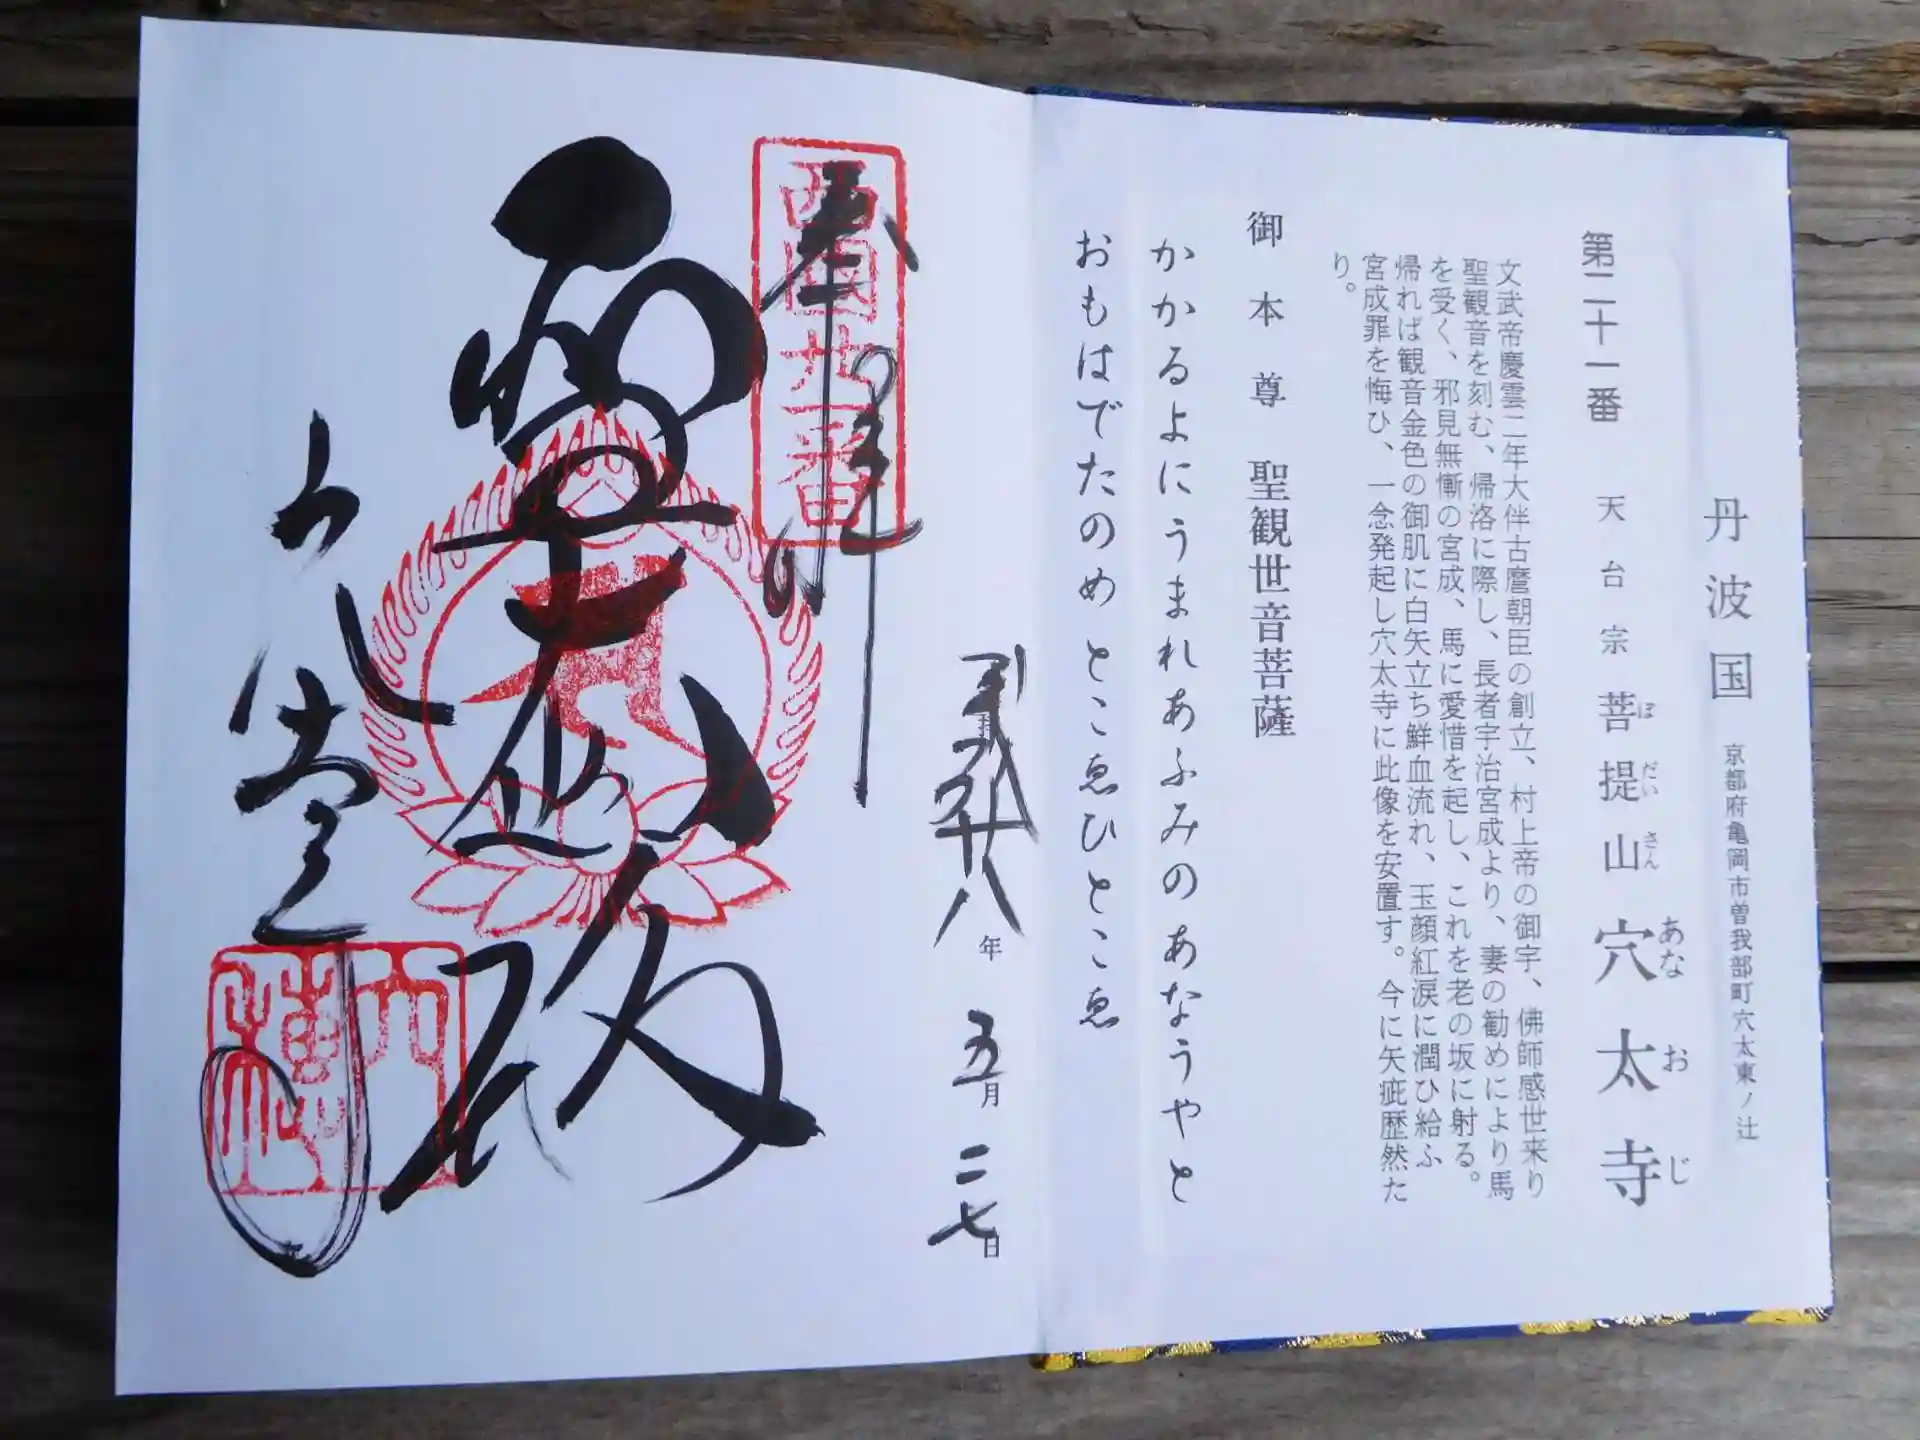 丹波国 京都府亀岡市曽我部町穴太東ノ辻
第二十一番 天台宗 菩提山 穴太寺
ぼだいさん あなおじ
文武帝慶雲二年大伴古麿朝臣の創立、村上帝の御宇、佛師感世来り
聖観音を刻む、帰洛に際し、長者宇治宮成より、妻の勧めにより馬
を受く、邪見無慚の宮成、馬に愛惜を起し、これを老の坂に射る。
帰れば観音金色の御肌に白矢立ち鮮血流れ、玉顔紅涙に潤ひ給ふ
宮成罪を悔ひ、一念発起し穴太寺に此像を安置す。今に矢疵歴然た
り。
御本尊 聖観世音菩薩
かかるよにうまれあふみのあなうやと
おもはでたのめ とこゑひとこゑ
平成廿八年 五月 二七日
奉拝
西国廿一番
穴太寺